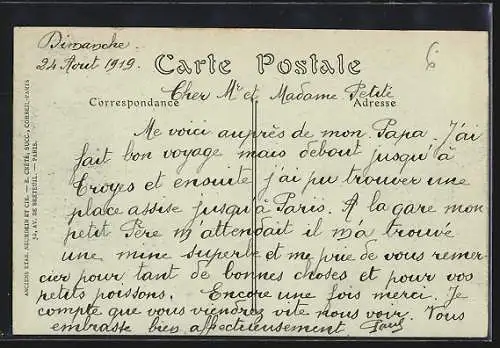 Dimanche
24 Aout 1919.
6
Carte Postale
Cher Mr et Madame Petité
Correspondance
Adresse
Me voici auprès de mon Papa. J'ai
fait bon voyage mais debout jusqu'à
Troyes et ensuite j'ai pu trouver une
place assise jusqu'à Paris. A la gare mon
petit Père m'attendait il m'a trouvé
une mine superbe et me prie de vous remer-
cier pour tant de bonnes choses et pour vos
petits poissons. Encore une fois merci. Je
compte que vous viendrez vite nous voir. Vous
embrasse bien affectueusement Paul
ANCIENS ETAB. NEURDEIN ET CIE. — E. CRÉTÉ, SUCC., CORBEIL-PARIS
52, AV. DE BRETEUIL. — PARIS.